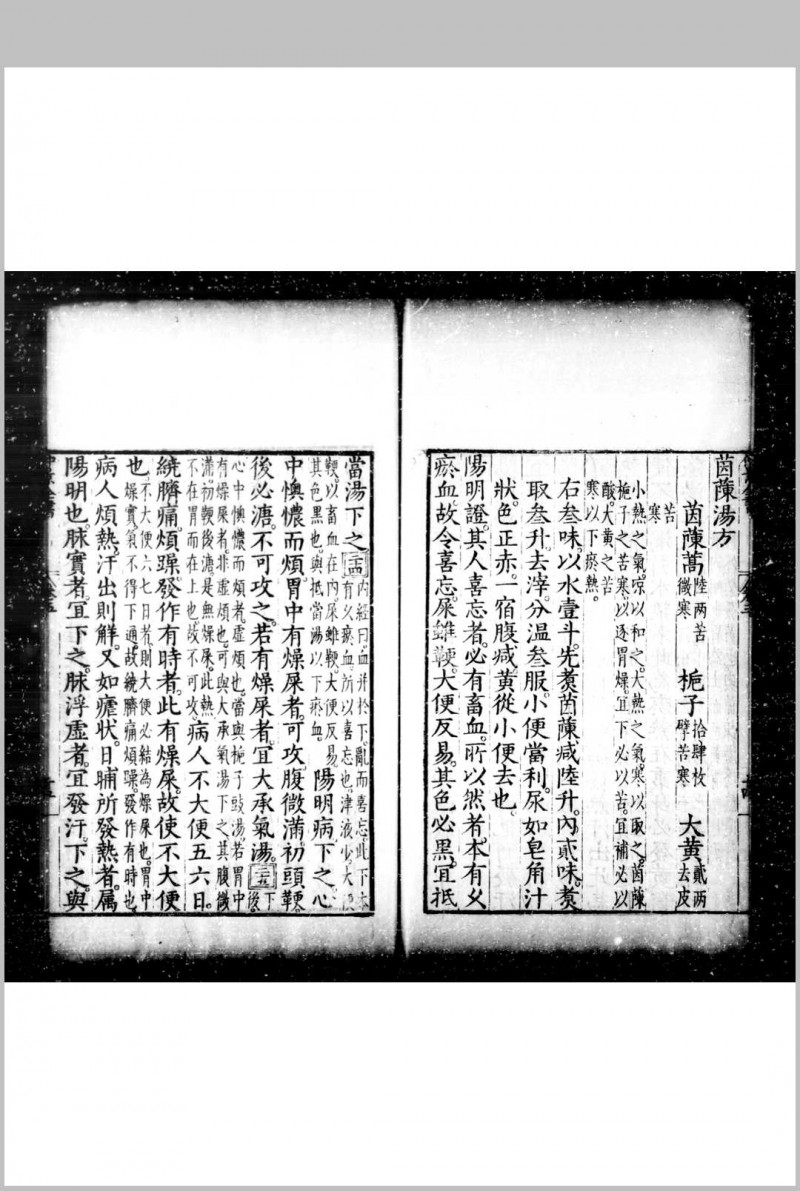 茵蔯湯方
茵蔯蒿陸两苦微寒　梔子拾肆枚擘苦寒　大黄貳两去皮
苦寒
小熱之氣凉以和之大熱之氣寒以取之茵蔯
梔子之苦寒以逐胃燥宜下必以苦宜補必以
酸大黄之苦
寒以下瘀熱
右叁味以水壹斗先煑茵蔯减陸升内貳味煑
取叁升去滓分温叁服小便當利尿如皂角汁
狀色正赤一宿腹减黄從小便去也
陽明證其人喜忘者必有畜血所以然者本有乆
瘀血故令喜忘屎雖鞕大便反易其色必黑宜抵
當湯下之二十四内經曰血并於下亂而喜忘此下本
有乆瘀血所以喜忘也津液少大便
鞕以畜血在内屎雖鞕大便反易
其色黑也與抵當湯以下瘀血陽明病下之心
中懊憹而煩胃中有燥屎者可攻腹微滿初頭鞕
後必溏不可攻之若有燥屎者宜大承氣湯二十五下後
心中懊憹而煩者虛煩也當與梔子豉湯若胃中
有燥屎者非虛煩也可與大承氣湯下之其腹微
滿初鞕後溏是無燥屎此熱
不在胃而在上也故不可攻病人不大便五六日
繞臍痛煩躁發作有時者此有燥屎故使不大便
也不大便六七日者則大便必結為燥屎也胃中
燥實氣不得下通故繞臍痛煩躁發作有時也
病人煩熱汗出則解又如瘧狀日晡所發熱者屬
陽明也脉實者宜下之脉浮虛者宜發汗下之與